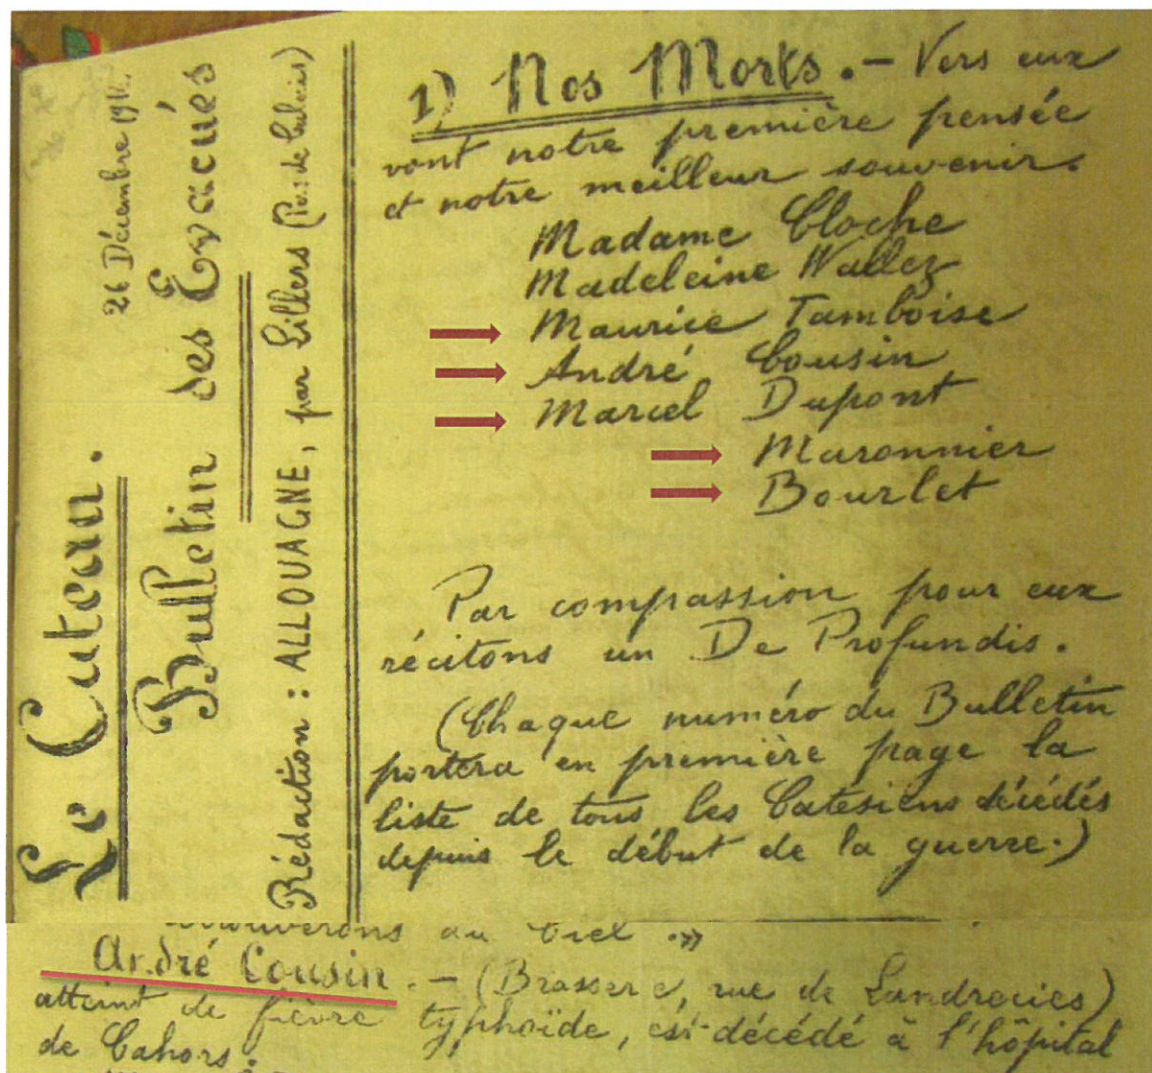 Le Cateau.
26 Décembre 191
Bulletin des Évacués
Rédaction : ALLOUAGNE, par Lillers (Pas de Calais)
1) Nos Morts. - Vers eux
vont notre première pensée
et notre meilleur souvenir.
Madame Cloche
Madeleine Wallez
Maurice Tamboise
André Cousin
Marcel Dupont
Maronnier
Bourlet
Par compassion pour eux
récitons un De Profundis.
(Chaque numéro du Bulletin
portera en première page la
liste de tous les Catésiens décédés
depuis le début de la guerre.)
au Ciel .»
André Cousin. - (Brasserie, rue de Landrecies)
atteint de fièvre typhoïde, est décédé à l'hôpital
de Cahors.